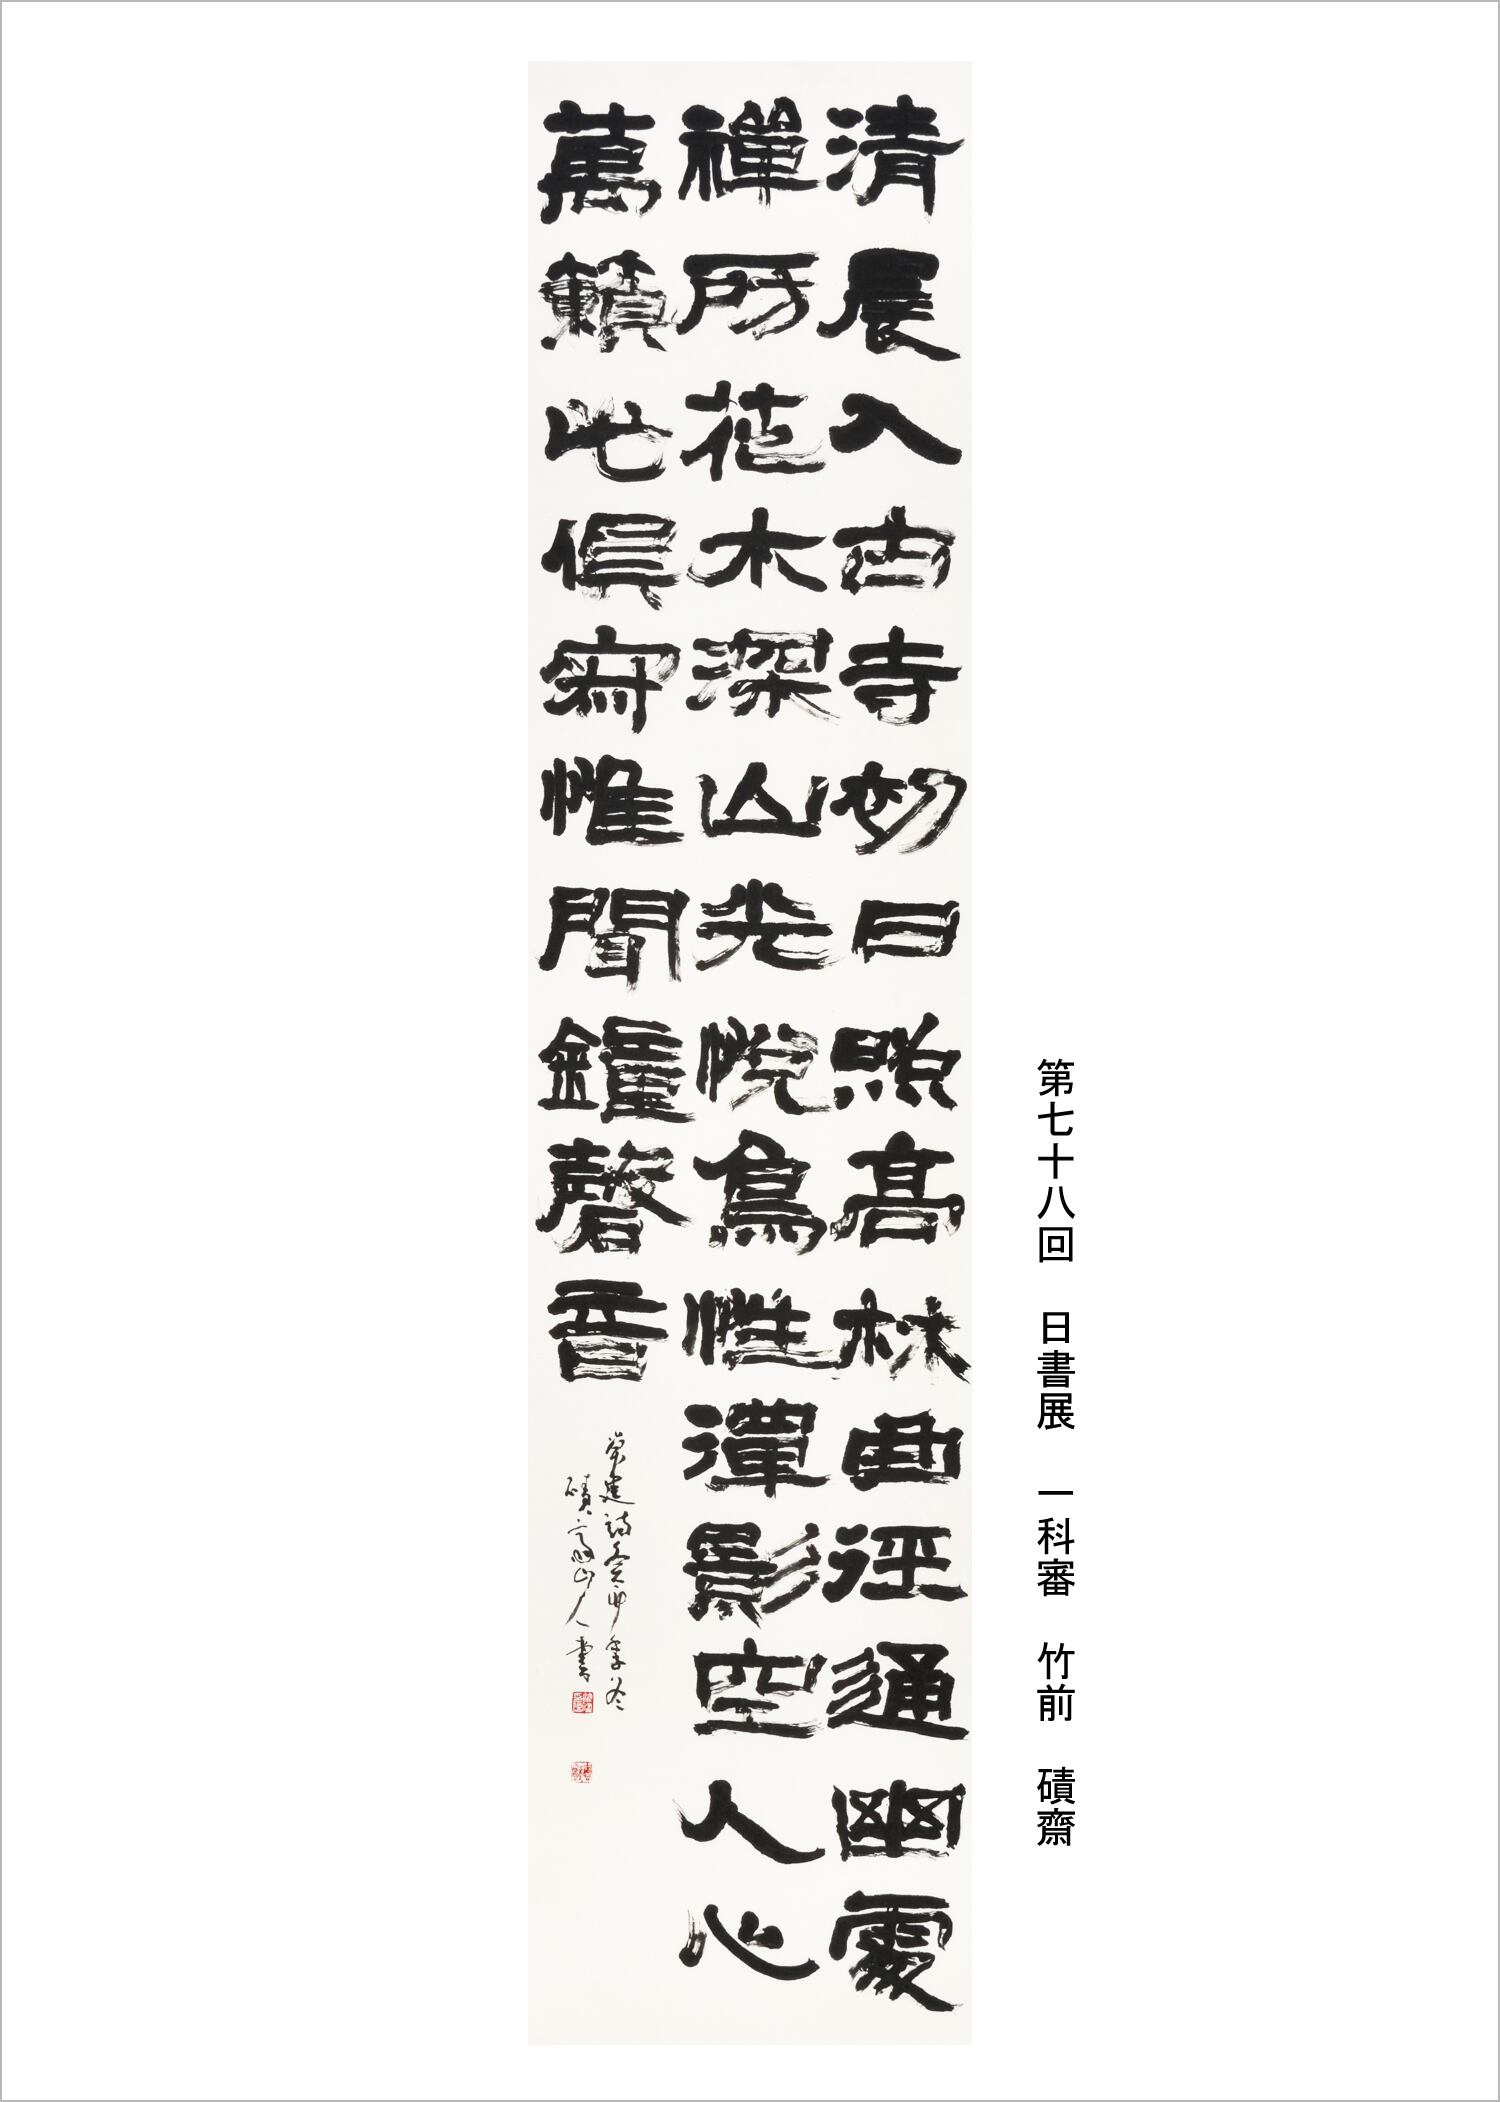 第七十八回　日書展　一科審　竹前　磧齋
清晨入古寺初日照高林曲径通幽處
禪房花木深山光悦鳥性潭影空人心
萬籟此俱寂惟聞鐘磬音
常建詩癸卯季冬
磧齋山人書